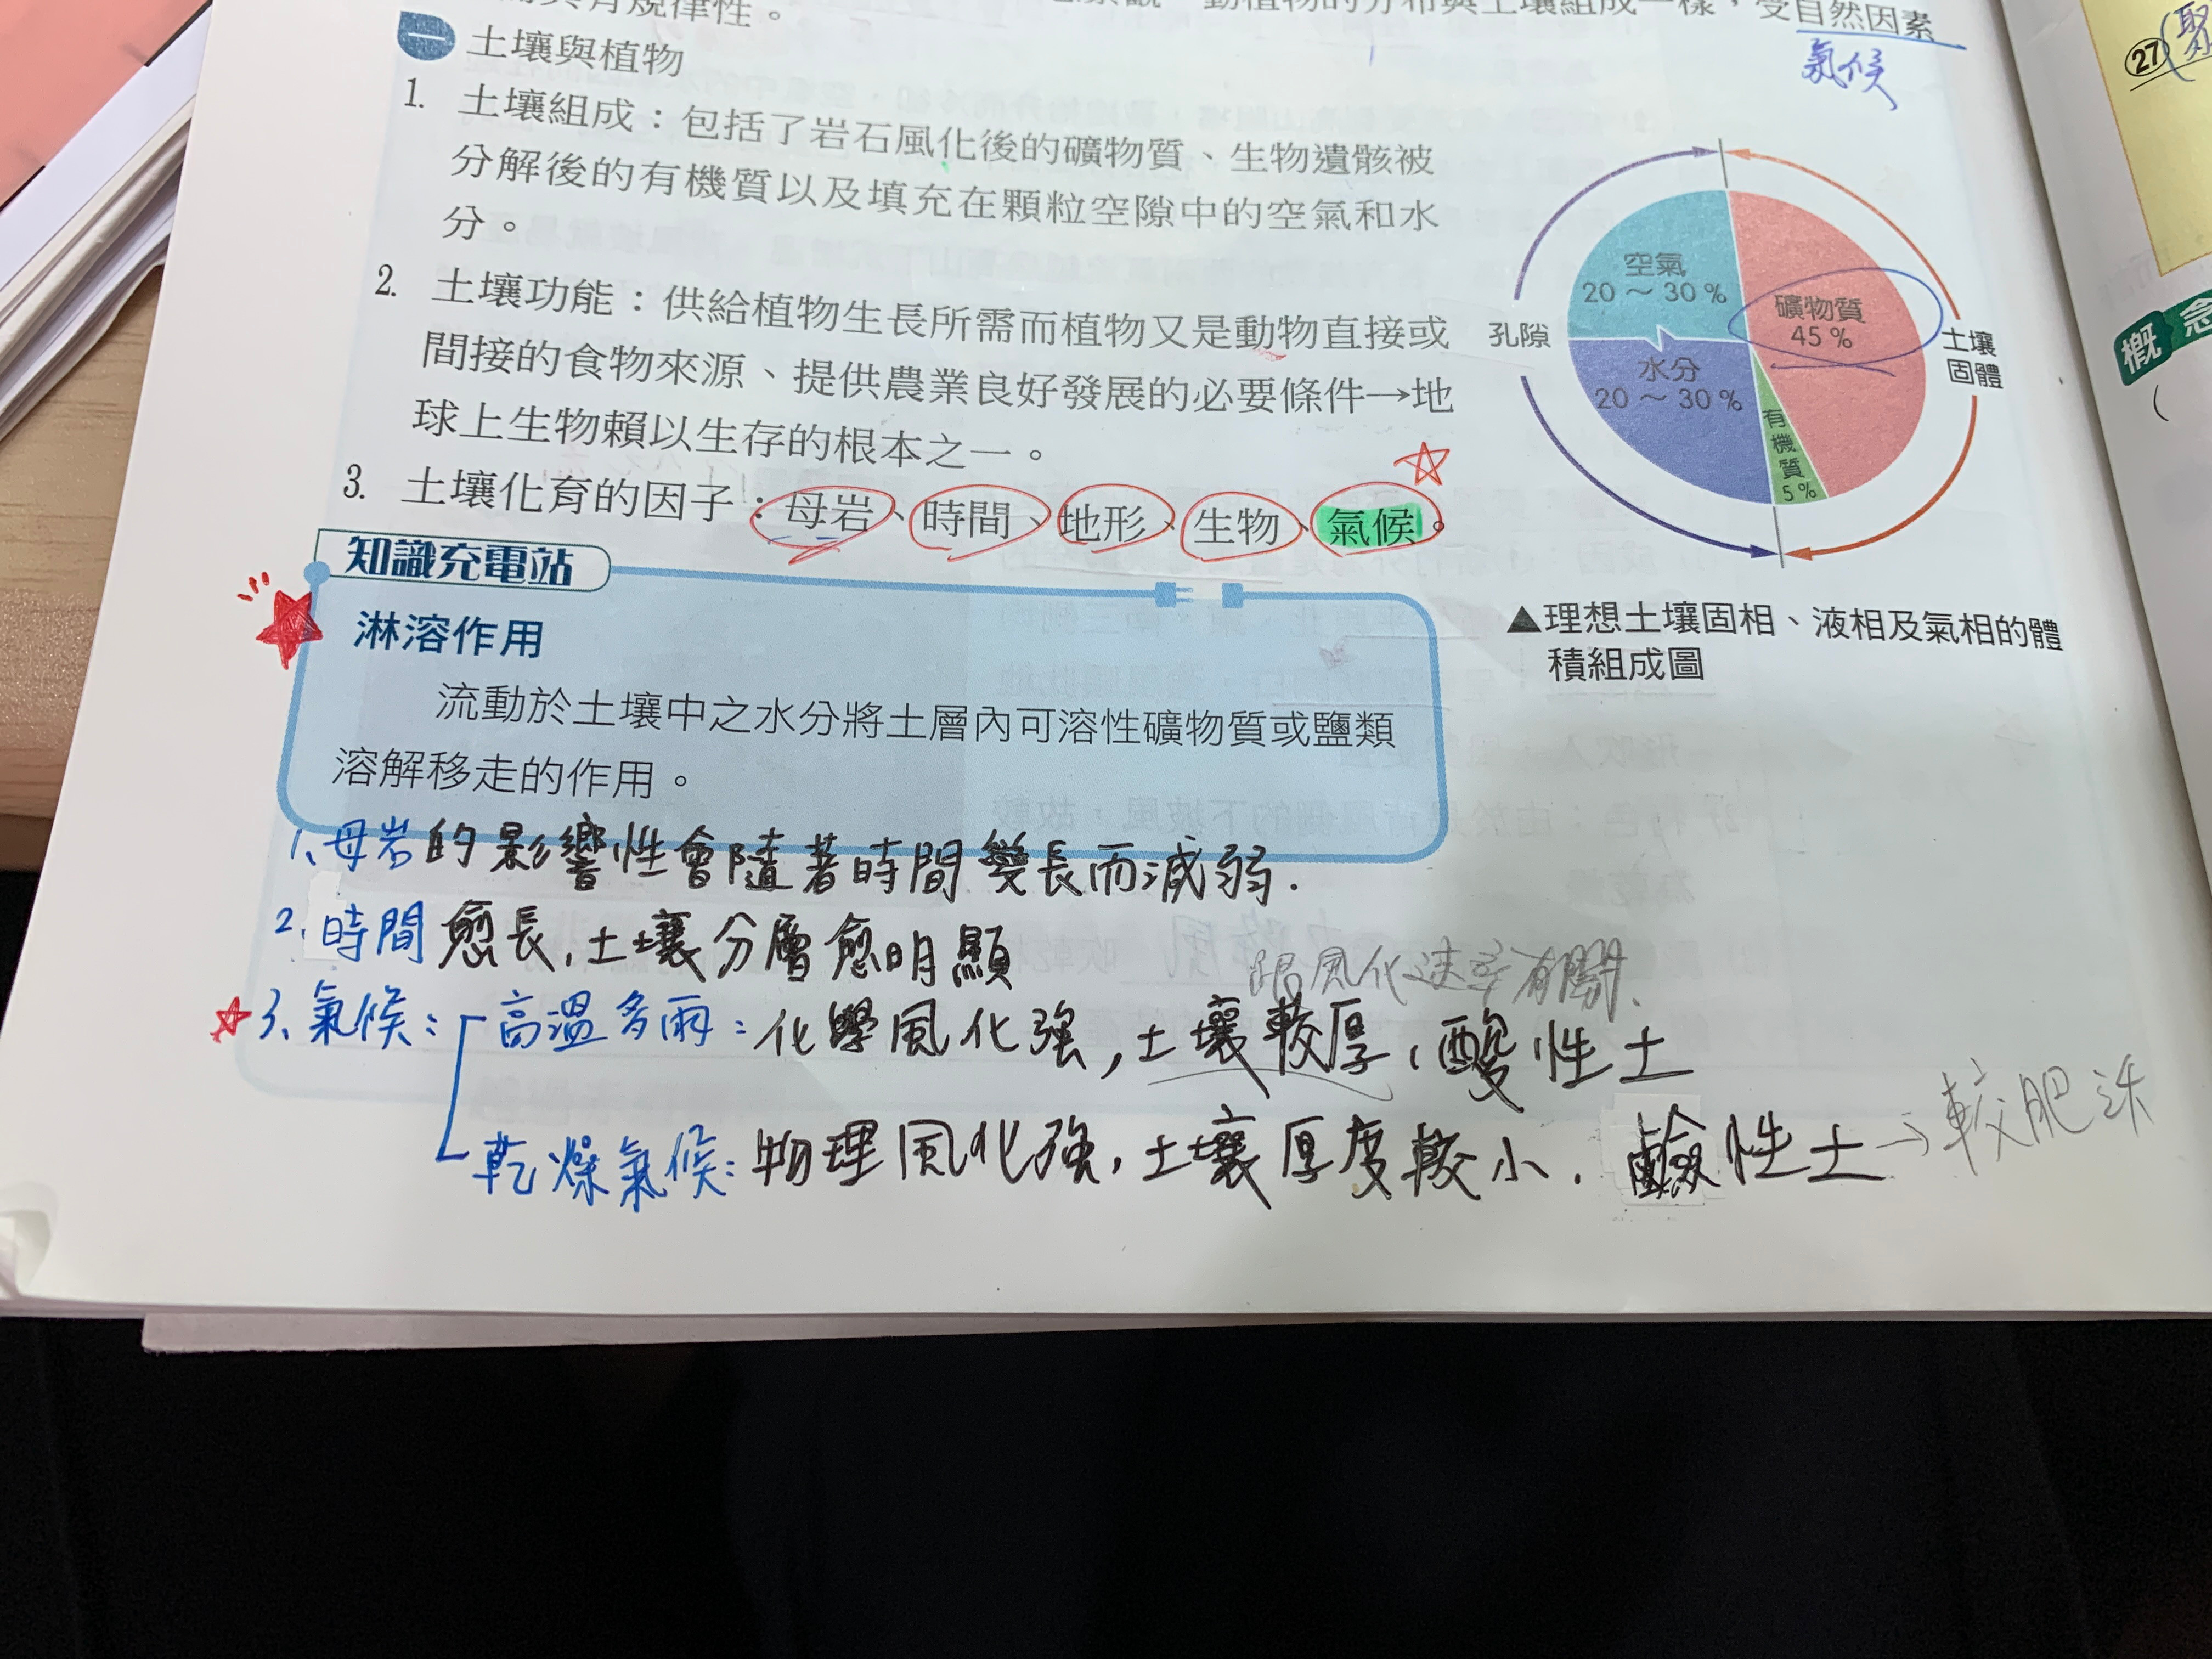 有規律性。
動植物的分布與土壤組成一樣，受自然因素
氣候
27
一 土壤與植物
1. 土壤組成：包括了岩石風化後的礦物質、生物遺骸被
分解後的有機質以及填充在顆粒空隙中的空氣和水
分。
2. 土壤功能：供給植物生長所需而植物又是動物直接或
間接的食物來源、提供農業良好發展的必要條件→地
球上生物賴以生存的根本之一。
3. 土壤化育的因子：母岩、時間、地形、生物、氣候。
空氣
20～30%
礦物質
45%
孔隙
水分
20～30%
有機質
5%
土壤
固體
▲理想土壤固相、液相及氣相的體
積組成圖
概念
知識充電站
淋溶作用
流動於土壤中之水分將土層內可溶性礦物質或鹽類
溶解移走的作用。
1、母岩的影響性會隨著時間變長而減弱.
2、時間愈長,土壤分層愈明顯
跟風化速率有關、
3、氣候：高溫多雨：化學風化強,土壤較厚,酸性土
乾燥氣候：物理風化強,土壤厚度較小. 鹼性土→較肥沃